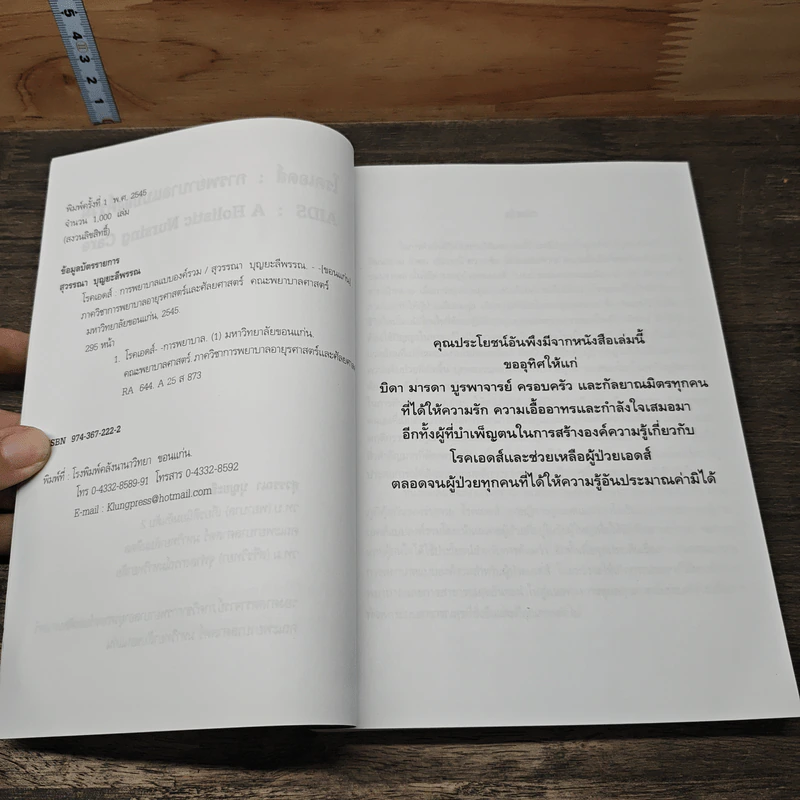 5 4 3 2 1
พิมพ์ครั้งที่ 1 พ.ศ. 2545
จำนวน 1,000 เล่ม
(สงวนลิขสิทธิ์)
ข้อมูลบัตรรายการ
สุวรรณา บุญยะลีพรรณ
โรคเอดส์ : การพยาบาลแบบองค์รวม / สุวรรณา บุญยะลีพรรณ. - -(ขอนแก่น)
ภาควิชาการพยาบาลอายุรศาสตร์และศัลยศาสตร์ คณะพยาบาลศาสตร์
มหาวิทยาลัยขอนแก่น, 2545.
295 หน้า
1. โรคเอดส์- -การพยาบาล. (1) มหาวิทยาลัยขอนแก่น.
คณะพยาบาลศาสตร์ ภาควิชาการพยาบาลอายุรศาสตร์และศัลยศาสตร์
RA 644. A 25 ส 873
ISBN 974-367-222-2
พิมพ์ที่ : โรงพิมพ์คลังนานาวิทยา ขอนแก่น.
โทร 0-4332-8589-91 โทรสาร 0-4332-8592
E-mail : Klungpress@hotmail.com
คุณประโยชน์อันพึงมีจากหนังสือเล่มนี้
ขออุทิศให้แก่
บิดา มารดา บูรพาจารย์ ครอบครัว และกัลยาณมิตรทุกคน
ที่ได้ให้ความรัก ความเอื้ออาทรและกำลังใจเสมอมา
อีกทั้งผู้ที่บำเพ็ญตนในการสร้างองค์ความรู้เกี่ยวกับ
โรคเอดส์และช่วยเหลือผู้ป่วยเอดส์
ตลอดจนผู้ป่วยทุกคนที่ได้ให้ความรู้อันประมาณค่ามิได้